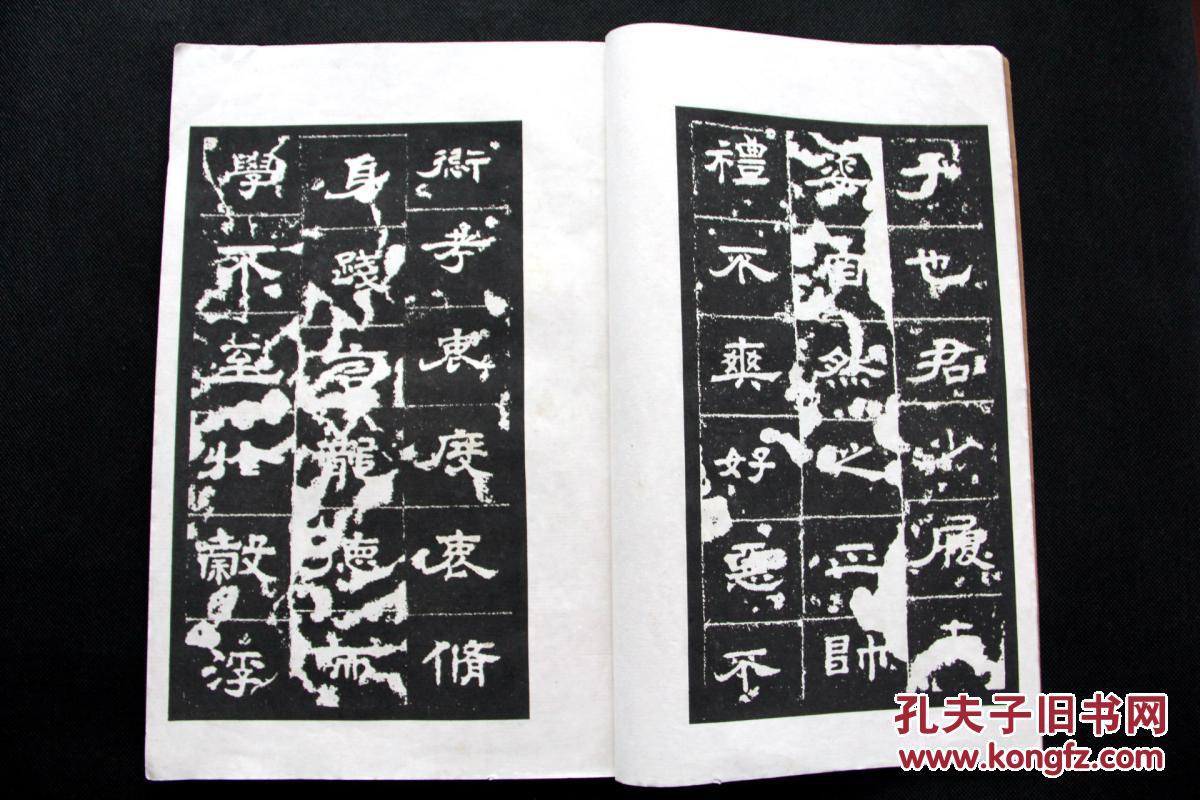 子也君少履天
姿自然之正帥
禮不爽好惡不
愆考衷度衷脩
身踐言龍德而
學不至於穀浮
孔夫子旧书网
www.kongfz.com